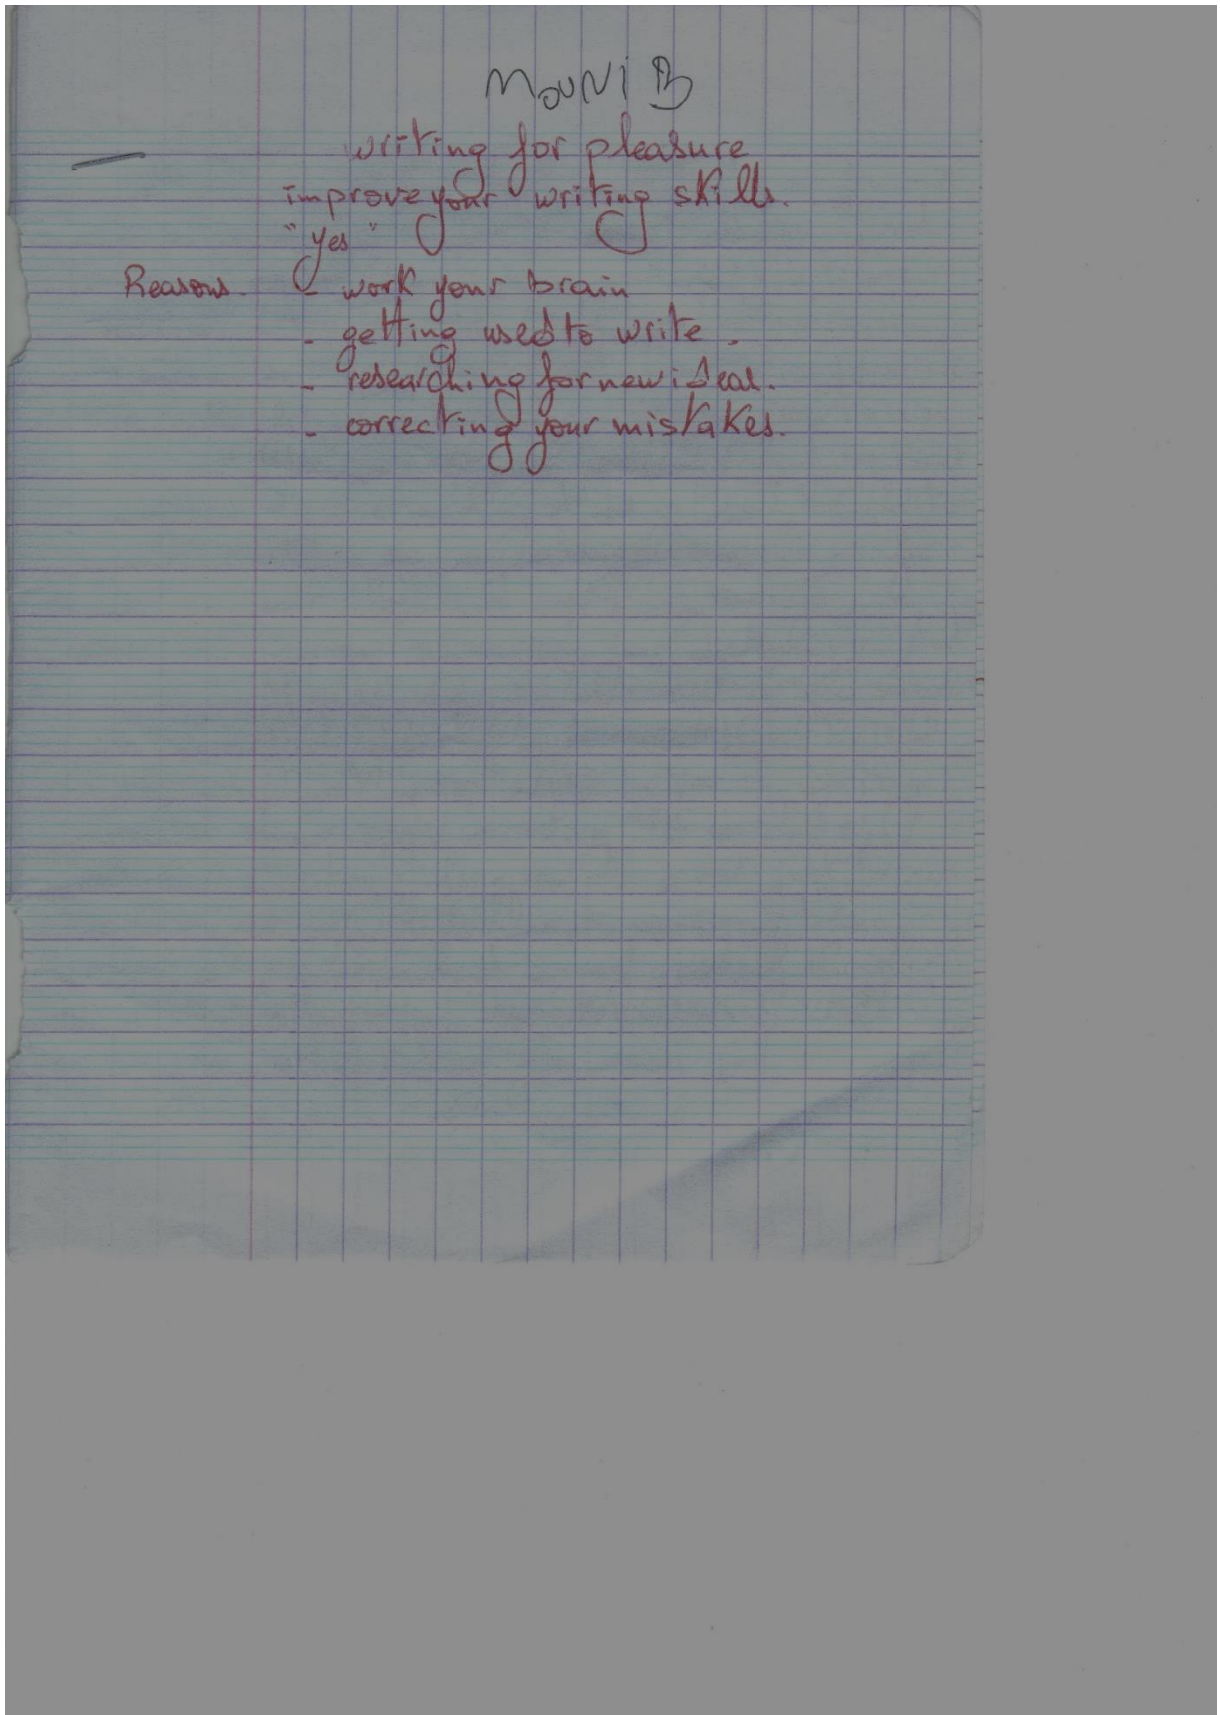 MOUNI B
writing for pleasure
improve your writing skills.
"yes"
Reasons - work your brain
- getting used to write.
- researching for new ideas.
- correcting your mistakes.